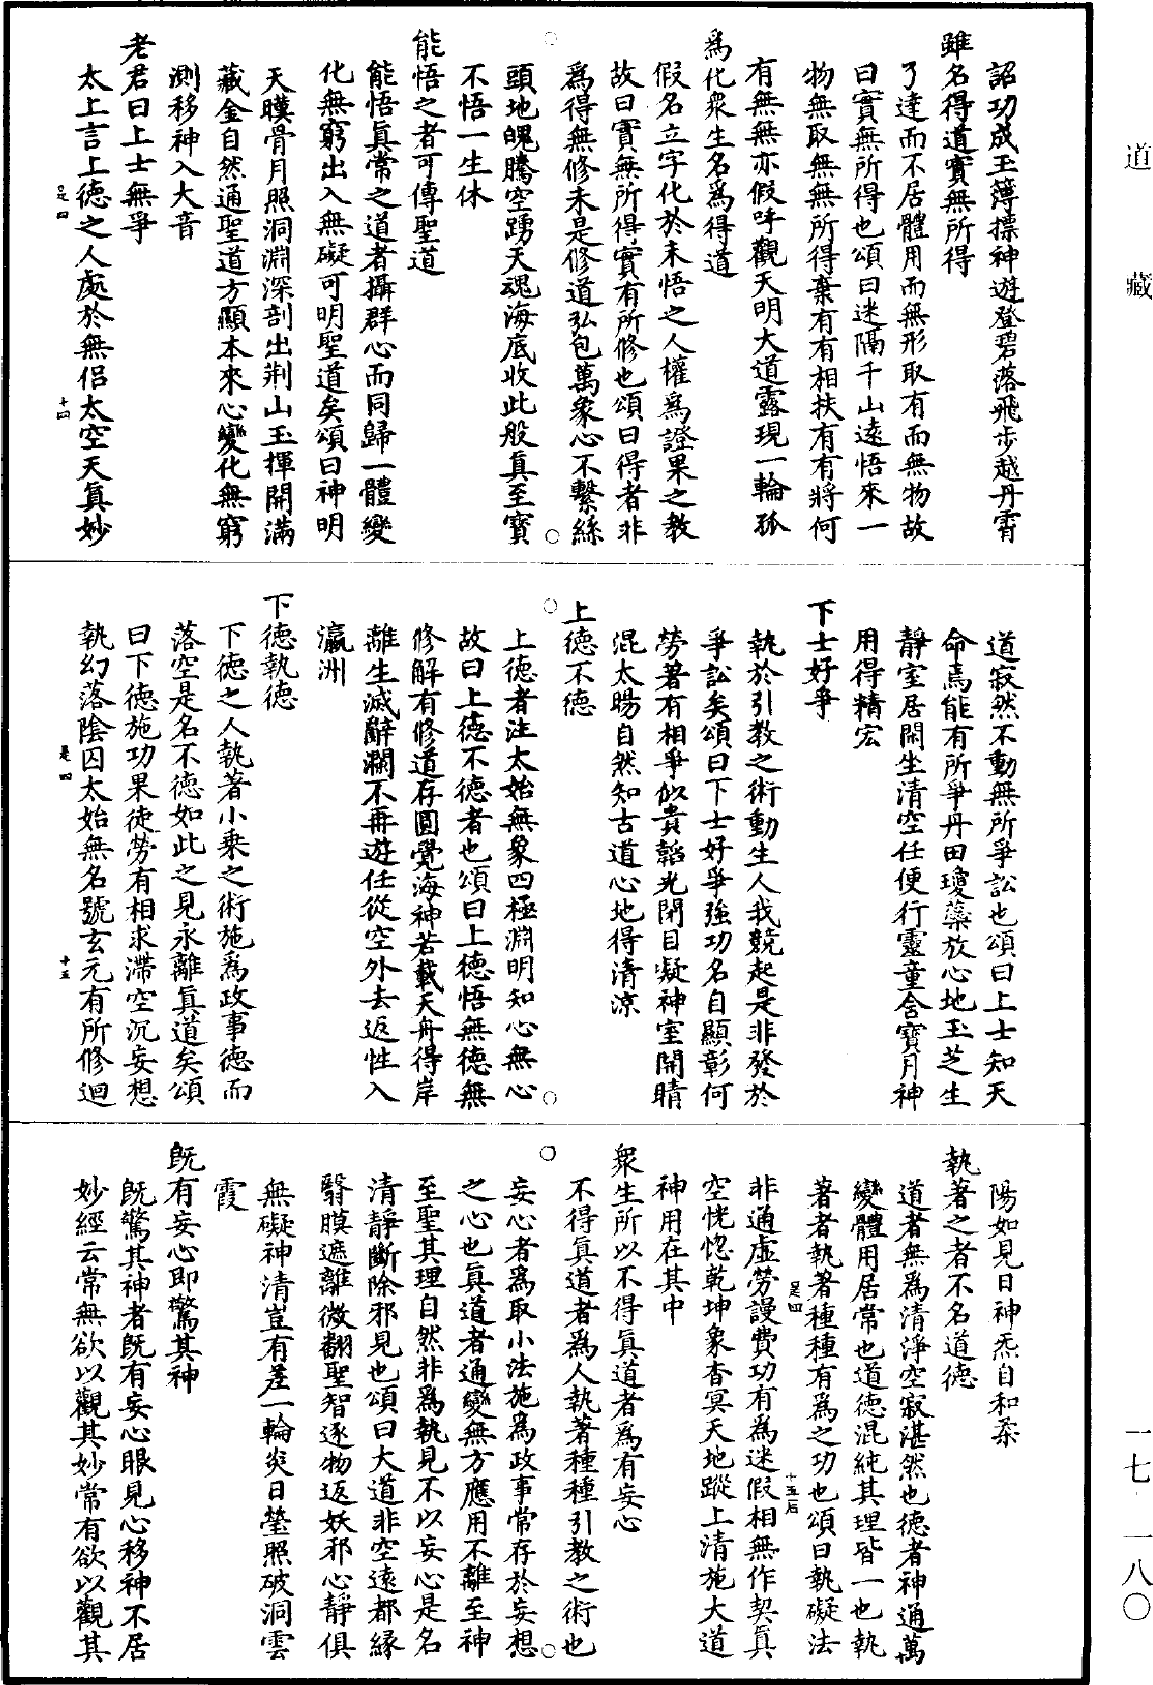 道藏
一七·一八〇
詔功成玉簿摽神遊登碧落飛步越丹霄
雖名得道實無所得
了達而不居體用而無形取有而無物故
曰實無所得也頌曰迷隔千山遠悟來一
物無取無無所得棄有有相扶有有將何
有無無亦假呼觀天明大道露現一輪孤
為化衆生名為得道
假名立字化於未悟之人權為證果之教
故曰實無所得實有所修也頌曰得者非
為得無修未是修道弘包萬象心不繫絲
頭地魄騰空踴天魂海底收此般真至寶
不悟一生休
能悟之者可傳聖道
能悟真常之道者攝群心而同歸一體變
化無窮出入無礙可明聖道矣頌曰神明
天瞙骨月照洞淵深剖出荆山玉揮開滿
藏金自然通聖道方顯本來心變化無窮
測移神入大音
老君曰上士無爭
太上言上德之人處於無侣太空天真妙
是四 十四
道寂然不動無所爭訟也頌曰上士知天
命焉能有所爭丹田瓊蘂放心地玉芝生
靜室居閑坐清空任便行靈童含寶月神
用得精宏
下士好爭
執於引教之術動生人我競起是非發於
爭訟矣頌曰下士好爭強功名自顯彰何
勞著有相爭似貴韜光閉目凝神室開睛
混太暘自然知古道心地得清凉
上德不德
上德者注太始無象四極淵明知心無心
故曰上德不德者也頌曰上德悟無德無
修解有修道存圓覺海神若載天舟得岸
離生滅辭瀾不再遊任從空外去返性入
瀛洲
下德執德
下德之人執著小乘之術施為政事德而
落空是名不德如此之見永離真道矣頌
曰下德施功果徒勞有相求滯空沉妄想
執幻落陰囚太始無名號玄元有所修迴
是四 十五
陽如見日神炁自和柔
執著之者不名道德
道者無為清淨空寂湛然也德者神通萬
變體用居常也道德混純其理皆一也執
著者執著種種有為之功也頌曰執礙法
是四 十五后
非通虛勞謾費功有為迷假相無作契真
空恍惚乾坤象杳冥天地蹤上清施大道
神用在其中
衆生所以不得真道者為有妄心
不得真道者為人執著種種引教之術也
妄心者為取小法施為政事常存於妄想
之心也真道者通變無方應用不離至神
至聖其理自然非為執見不以妄心是名
清靜斷除邪見也頌曰大道非空遠都緣
翳膜遮離微翻聖智逐物返妖邪心靜俱
無礙神清豈有差一輪炎日瑩照破洞雲
霞
既有妄心即驚其神
既驚其神者既有妄心眼見心移神不居
妙經云常無欲以觀其妙常有欲以觀其